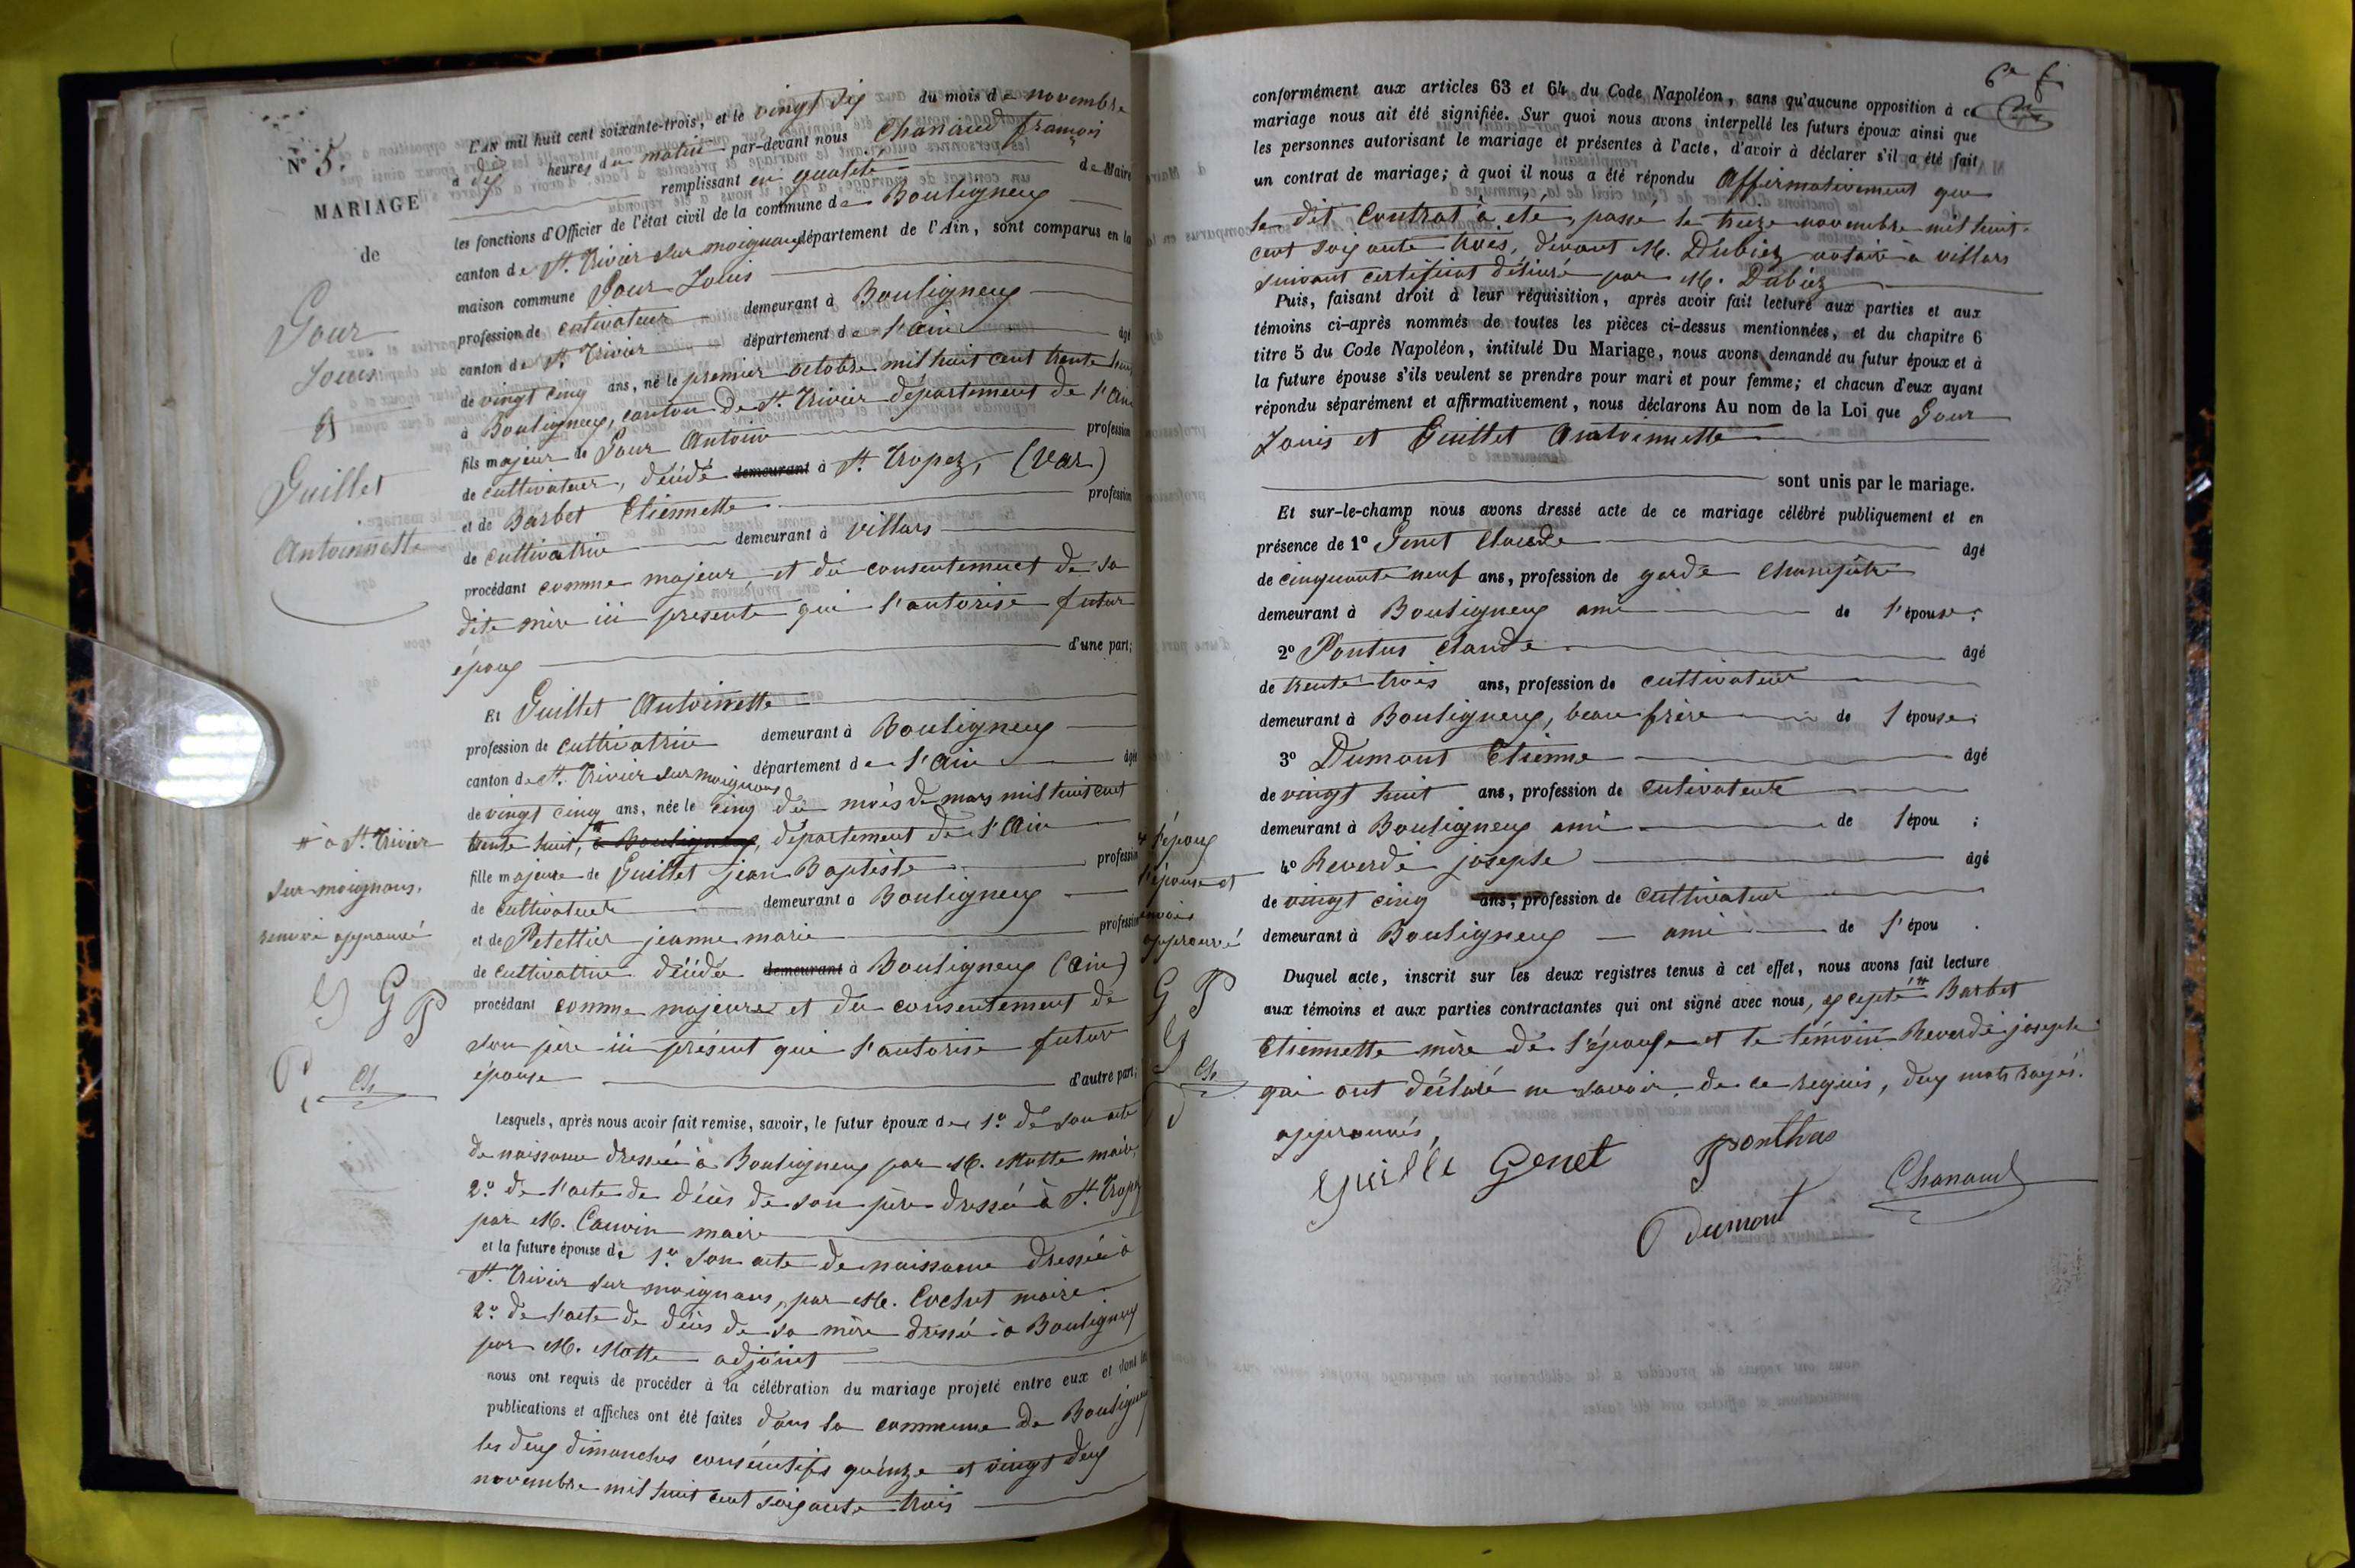 N° 5.
MARIAGE
de
Gour
Louis
et
Guillet
Antoinette
# à St. Trivier
sur-moignans,
renvoi approuvé
G P
Ch
L'AN mil huit cent soixante-trois, et le vingt six du mois de novembre
à dix heures du matin par-devant nous Chanaud françois
remplissant en qualité de Maire
les fonctions d'Officier de l'état civil de la commune de Bouligneux
canton de St. Trivier sur moignans département de l'Ain, sont comparus en la
maison commune Gour Louis
profession de cutivateur demeurant à Bouligneux
canton de St. Trivier département de l'Ain âgé
de vingt cinq ans, né le premier octobre mil huit cent trente huit
à Bouligneux, canton de St. Trivier département de l'Ain
fils majeur de Gour Antoine profession
de cultivateur, décédé demeurant à St. Tropez, (Var)
et de Barbet Etiennette profession
de cultivatrice demeurant à villars
procédant comme majeur, et du consentement de sa
dite mère ici présente qui l'autorise futur
époux d'une part;
Et Guillet Antoinette
profession de cultivatrice demeurant à Bouligneux
canton de St. Trivier sur moignans département de l'Ain âgée
de vingt cinq ans, née le cinq du mois de mars mil huit cent
trente huit, # à Bouligneux, département de l'Ain
fille majeure de Guillet jean Baptiste profession
de cultivateur demeurant à Bouligneux
et de Pelettier jeanne marie profession
de cultivatrice décédée demeurant à Bouligneux (Ain)
procédant comme majeure et du consentement de
son père ici présent qui l'autorise futur
épouse d'autre part;
Lesquels, après nous avoir fait remise, savoir, le futur époux de 1° de son acte
de naissance dressée à Bouligneux par M. Motte maire,
2° de l'acte de décès de son père dressé à St. Tropez
par M. Cauvin maire
et la future épouse de 1° son acte de naissance dressée à
St. Trivier sur moignans, par M. Cochet maire
2° de l'acte de décès de sa mère dressé à Bouligneux
par M. Motte adjoint
nous ont requis de procéder à la célébration du mariage projeté entre eux et dont les
publications et affiches ont été faites dans la commune de Bouligneux
les deux dimanches consécutifs quinze et vingt deux
novembre mil huit cent soixante trois
conformément aux articles 63 et 64 du Code Napoléon, sans qu'aucune opposition à ce
mariage nous ait été signifiée. Sur quoi nous avons interpellé les futurs époux ainsi que
les personnes autorisant le mariage et présentes à l'acte, d'avoir à déclarer s'il a été fait
un contrat de mariage; à quoi il nous a été répondu Affirmativement que
le dit Contrat à été, passé le treize novembre mil huit
cent soixante trois, devant M. Dubiez notaire à villars
suivant certificat délivré par M. Dubiez
Puis, faisant droit à leur réquisition, après avoir fait lecture aux parties et aux
témoins ci-après nommés de toutes les pièces ci-dessus mentionnées, et du chapitre 6
titre 5 du Code Napoléon, intitulé Du Mariage, nous avons demandé au futur époux et à
la future épouse s'ils veulent se prendre pour mari et pour femme; et chacun d'eux ayant
répondu séparément et affirmativement, nous déclarons Au nom de la Loi que Gour
Louis et Guillet Antoinette
sont unis par le mariage.
Et sur-le-champ nous avons dressé acte de ce mariage célébré publiquement et en
présence de 1° Genet Claude âgé
de cinquante neuf ans, profession de garde Champêtre
demeurant à Bouligneux ami de l'épouse;
2° Pontus Claude âgé
de trente trois ans, profession de cultivateur
demeurant à Bouligneux, beau frère de l'épouse;
3° Dumont Etienne âgé
de vingt huit ans, profession de cultivateur
demeurant à Bouligneux ami de l'épou ;
4° Reverdi joseph âgé
de vingt cinq ans, profession de cultivateur
demeurant à Bouligneux ami de l'épou .
Duquel acte, inscrit sur les deux registres tenus à cet effet, nous avons fait lecture
aux témoins et aux parties contractantes qui ont signé avec nous, excepté # Barbet
Etiennette mère de l'époux et le témoin Reverdi joseph
qui ont déclaré ne savoir, de ce requis, deux mots rayés.
approuvés,
# l'époux
l'épouse et
renvoi
approuvé
G P
Ch
Guillé Genet Ponthus
Chanaud
Dumont